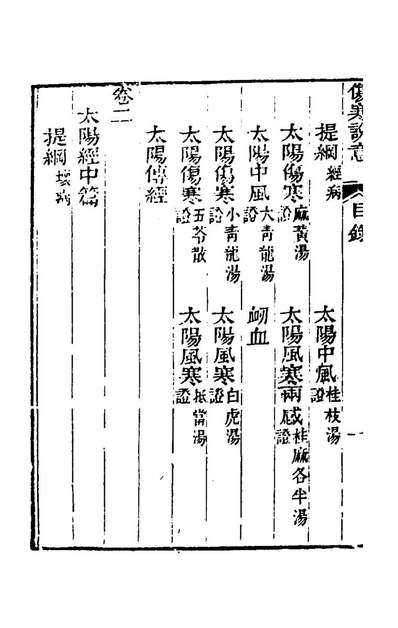 傷寒說意 目錄 一
提綱 經病 太陽中風 桂枝湯證
太陽傷寒 麻黃湯證 太陽風寒兩感 桂麻各半湯證
太陽中風 大青龍湯證 衂血
太陽傷寒 小青龍湯證 太陽風寒 白虎湯證
太陽傷寒 五苓散證 太陽風寒 抵當湯證
太陽傳經
卷二
太陽經中篇
提綱 壞病